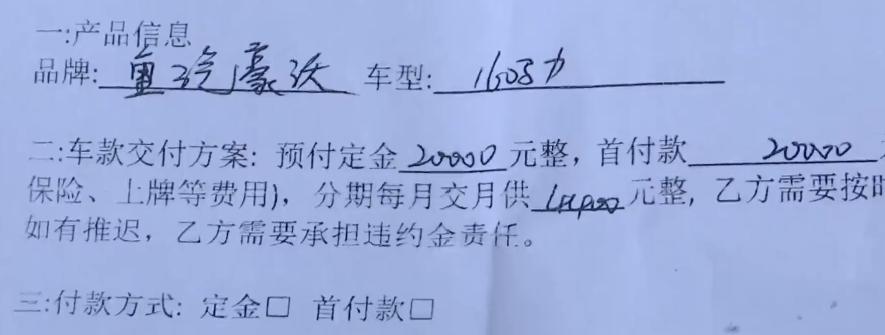 一:产品信息
品牌: 重汽豪沃 车型: 160马力
二:车款交付方案: 预付定金 20000 元整, 首付款 20000
保险、上牌等费用), 分期每月交月供 元整, 乙方需要按时
如有推迟, 乙方需要承担违约金责任。
三:付款方式: 定金□ 首付款□